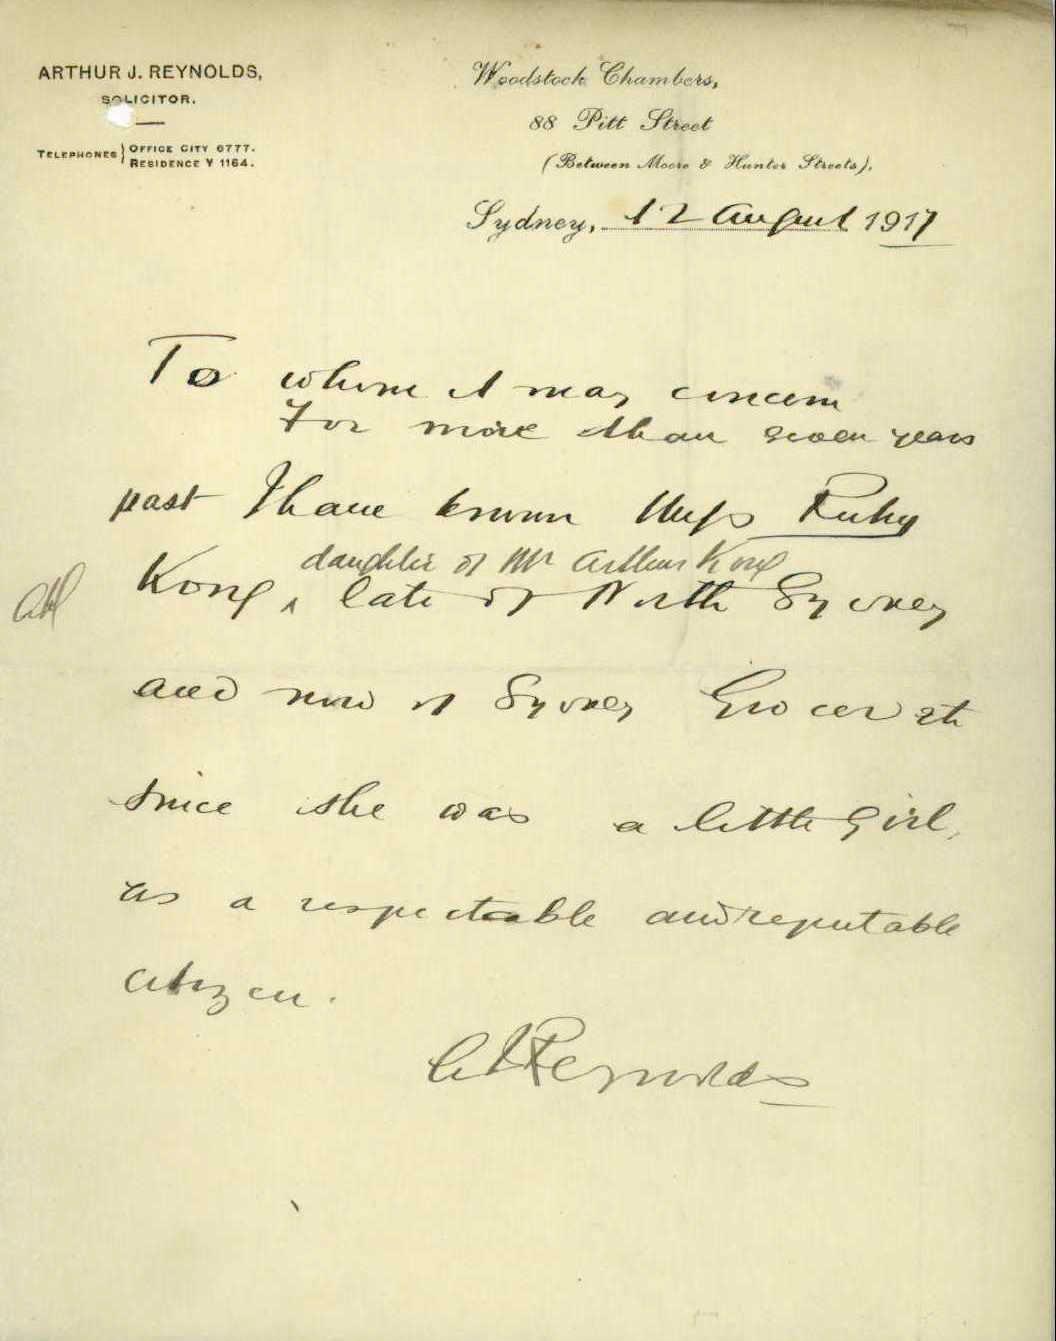 ARTHUR J. REYNOLDS,
SOLICITOR.
TELEPHONES } OFFICE CITY 6777.
RESIDENCE Y 1164.
Woodstock Chambers,
88 Pitt Street
(Between Moore & Hunter Streets).
Sydney, 12 August 1917
To whom it may concern
For more than seven years
past I have known Miss Ruby
daughter of Mr Arthur Kong
Kong, ^ late of North Sydney
and now of Sydney Grocer etc
since she was a little girl,
as a respectable and reputable
citizen.
A J Reynolds